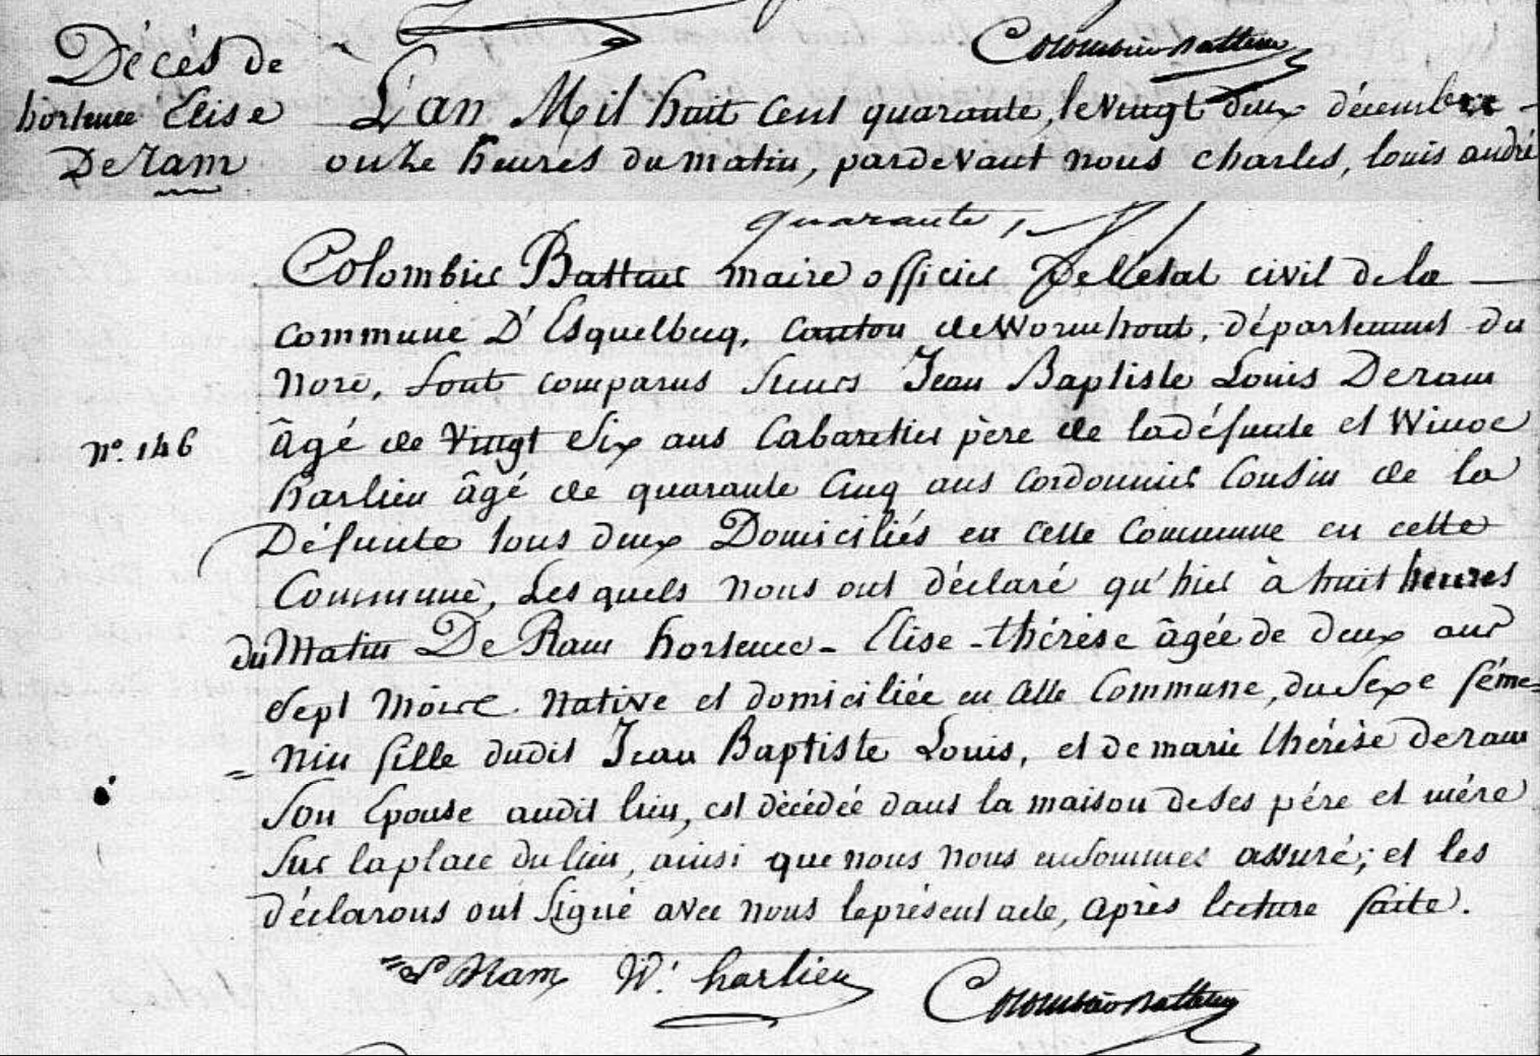 Colombier Batteur
Décés de
hortence Elise
De Ram
L'an Mil huit Cent quarante, le vingt deux décembre
onze heures du matin, pardevant nous charles, louis andré
quarante,
Colombier Batteur maire officier De l'état civil de la
commune D'Esquelbecq, Canton de Wormhout, département du
Nord, Sont comparus Sieurs Jean Baptiste Louis Deram
N.º 146
âgé de vingt Six ans Cabaretier père de la défunte et Winoc
harlieu âgé de quarante Cinq ans Cordonnier Cousin de la
Défunte tous deux Domiciliés en cette Commune en cette
Commune, Lesquels nous ont déclaré qu'hier à huit heures
du Matin De Ram hortence - Elise - thérèse âgée de deux ans
Sept Mois native et domiciliée en Cette Commune, du Sexe féme-
= nin fille dudit Jean Baptiste Louis, et de marie thérèse deram
Son Epouse audit lieu, est décédée dans la maison de Ses pére et mére
Sur la place du lieu, ainsi que nous nous en Sommes assuré; et les
déclarons ont Signé avec nous le présent acte, Après lecture faite.
Ram W. harlieu
Colombier Batteur